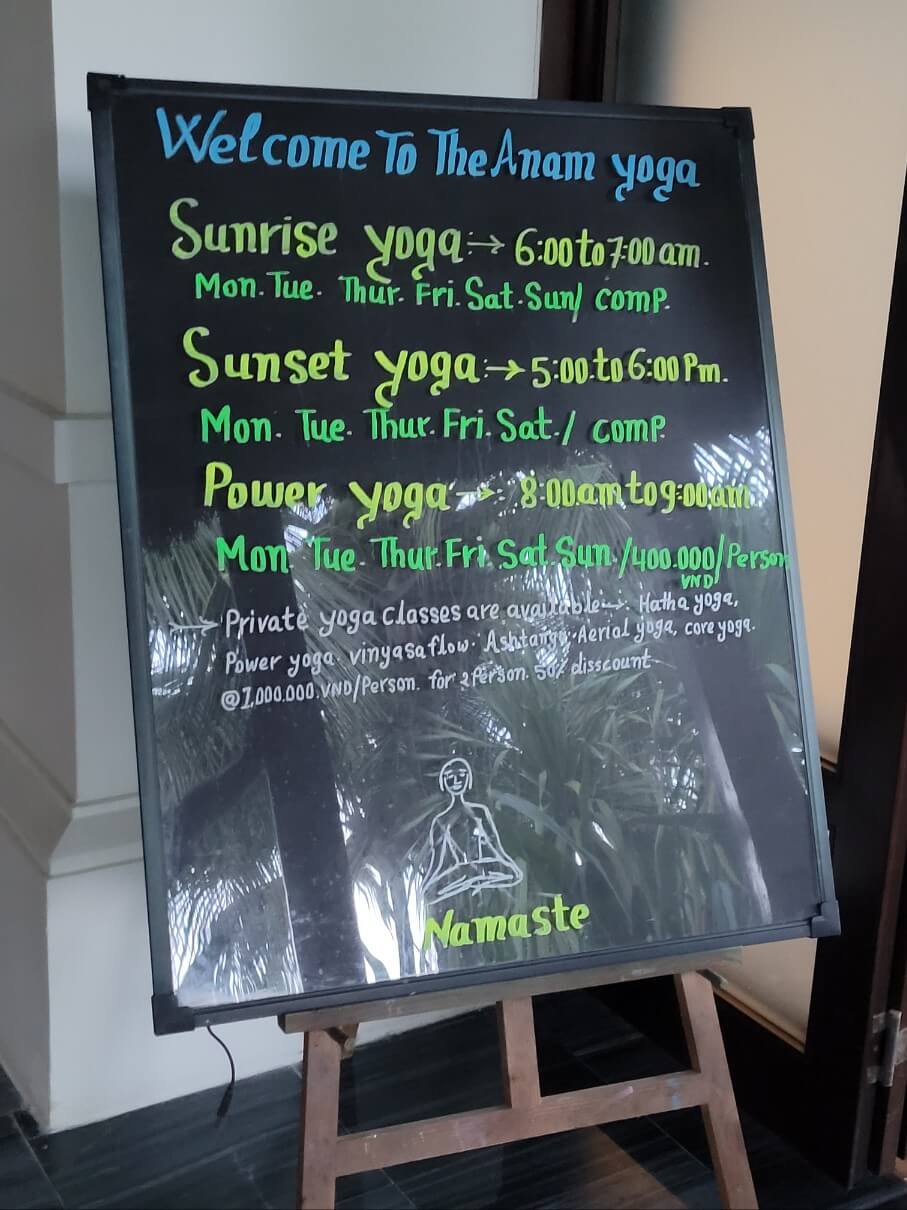 Welcome To The Anam yoga
Sunrise yoga:→ 6:00 to 7:00 am.
Mon. Tue. Thur. Fri. Sat. Sun/ comp.
Sunset yoga:→ 5:00 to 6:00 Pm.
Mon. Tue. Thur. Fri. Sat./ comp.
Power yoga→: 8:00am to 9:00am
Mon. Tue. Thur. Fri. Sat. Sun./400.000/Person
VND
→ Private yoga Classes are available→: Hatha yoga,
Power yoga. vinyasa flow. Ashtanga. Aerial yoga, core yoga.
@1,000.000.VND/Person. for 2 Person. 50% disscount
Namaste